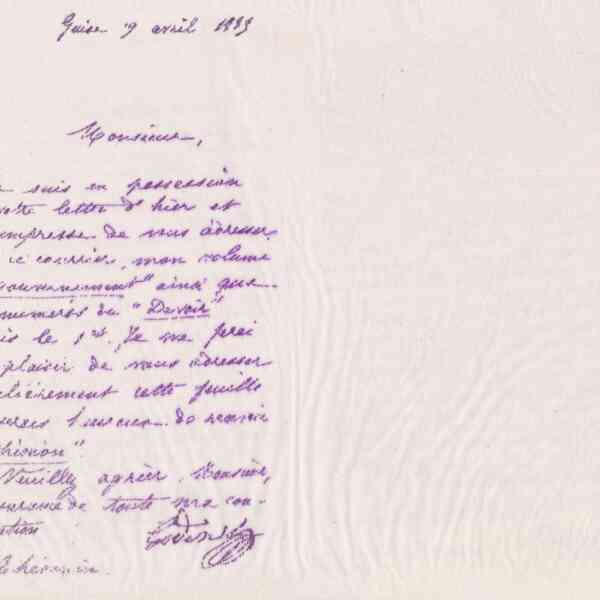 Guise 9 avril 1883
Monsieur,
suis en possession
lettre d'hier et
empresse de vous adresser
ce courrier, mon volume
ouvernement" ainsi que
numéros du "Devoir"
is le 1er. Je me ferai
plaisir de vous adresser
lièrement cette feuille
l'honneur de
Veuillez agréer, Monsieur,
de toute ma con-
ation
Godin